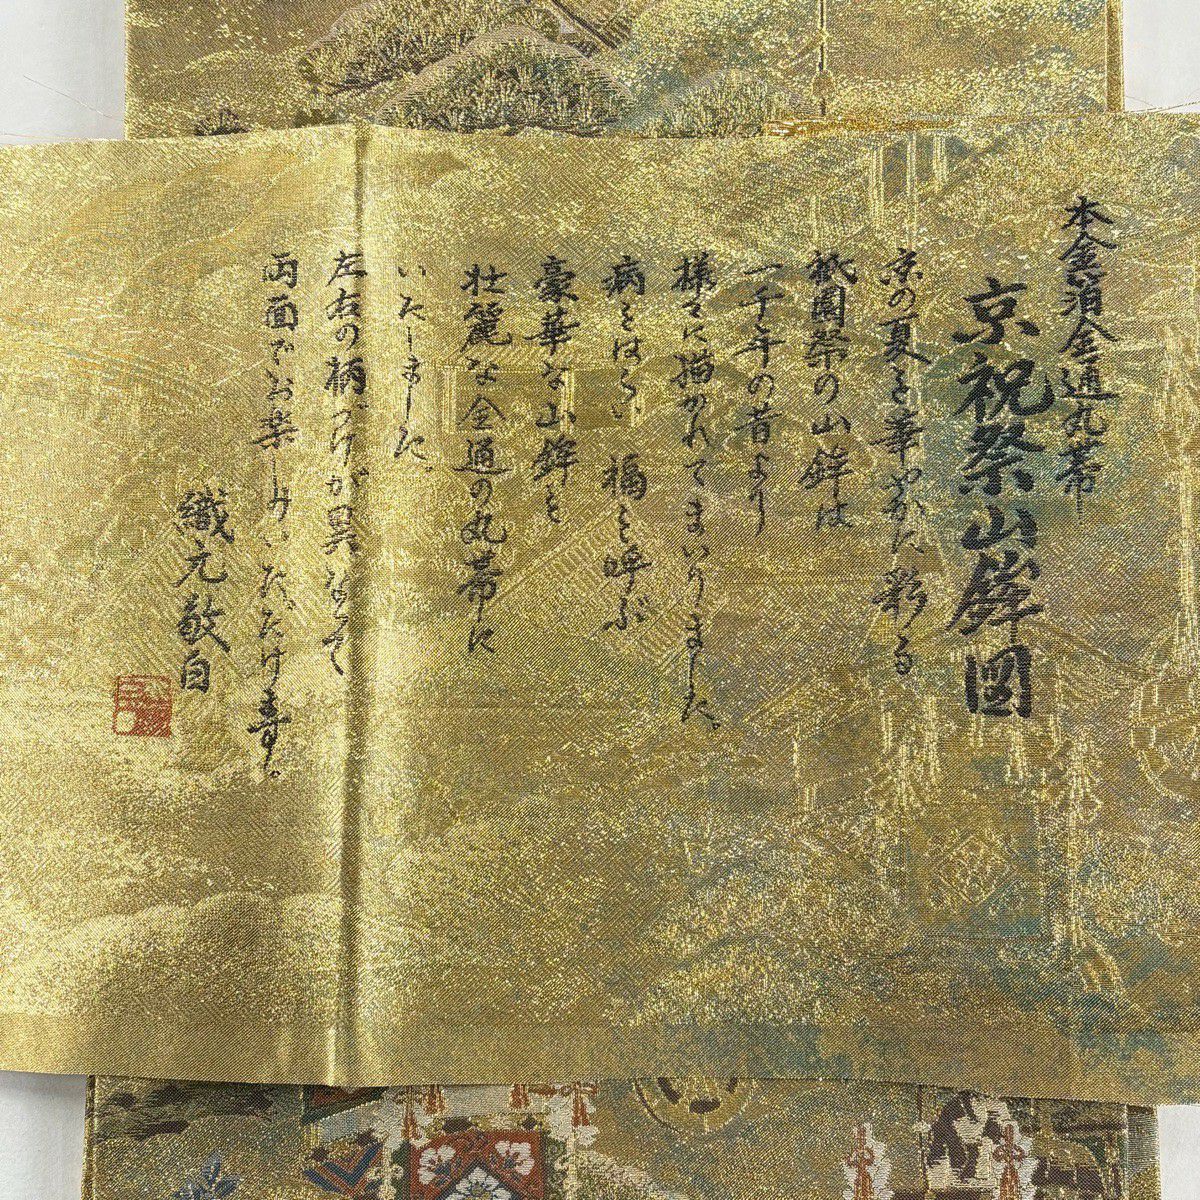 本金箔全通丸帯
京祝祭山鉾図
京の夏を華やかに彩る
祇園祭の山鉾は
一千年の昔より
様々に描かれてまいりました。
病をはらい福を呼ぶ
豪華な山鉾を
壮麗な全通の丸帯に
いたしました。
左右の柄づけが異なって
両面でお楽しみいただけます。
織元敬白